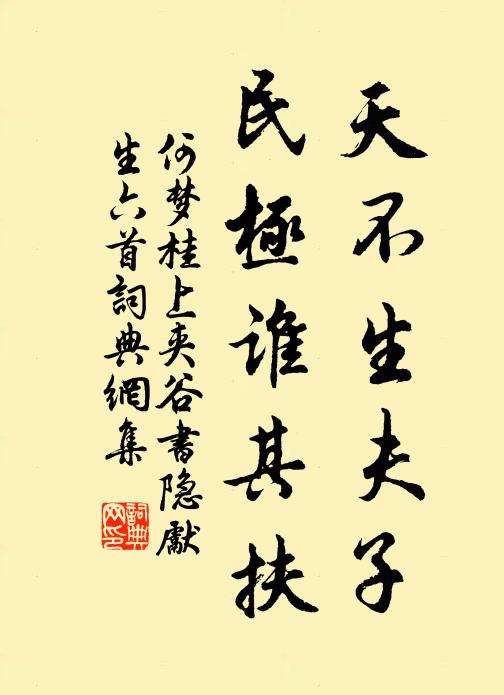 天不生夫子
民極谁其扶
何梦桂上夹谷书隐獻
生六首詞典網集
詞典
网印